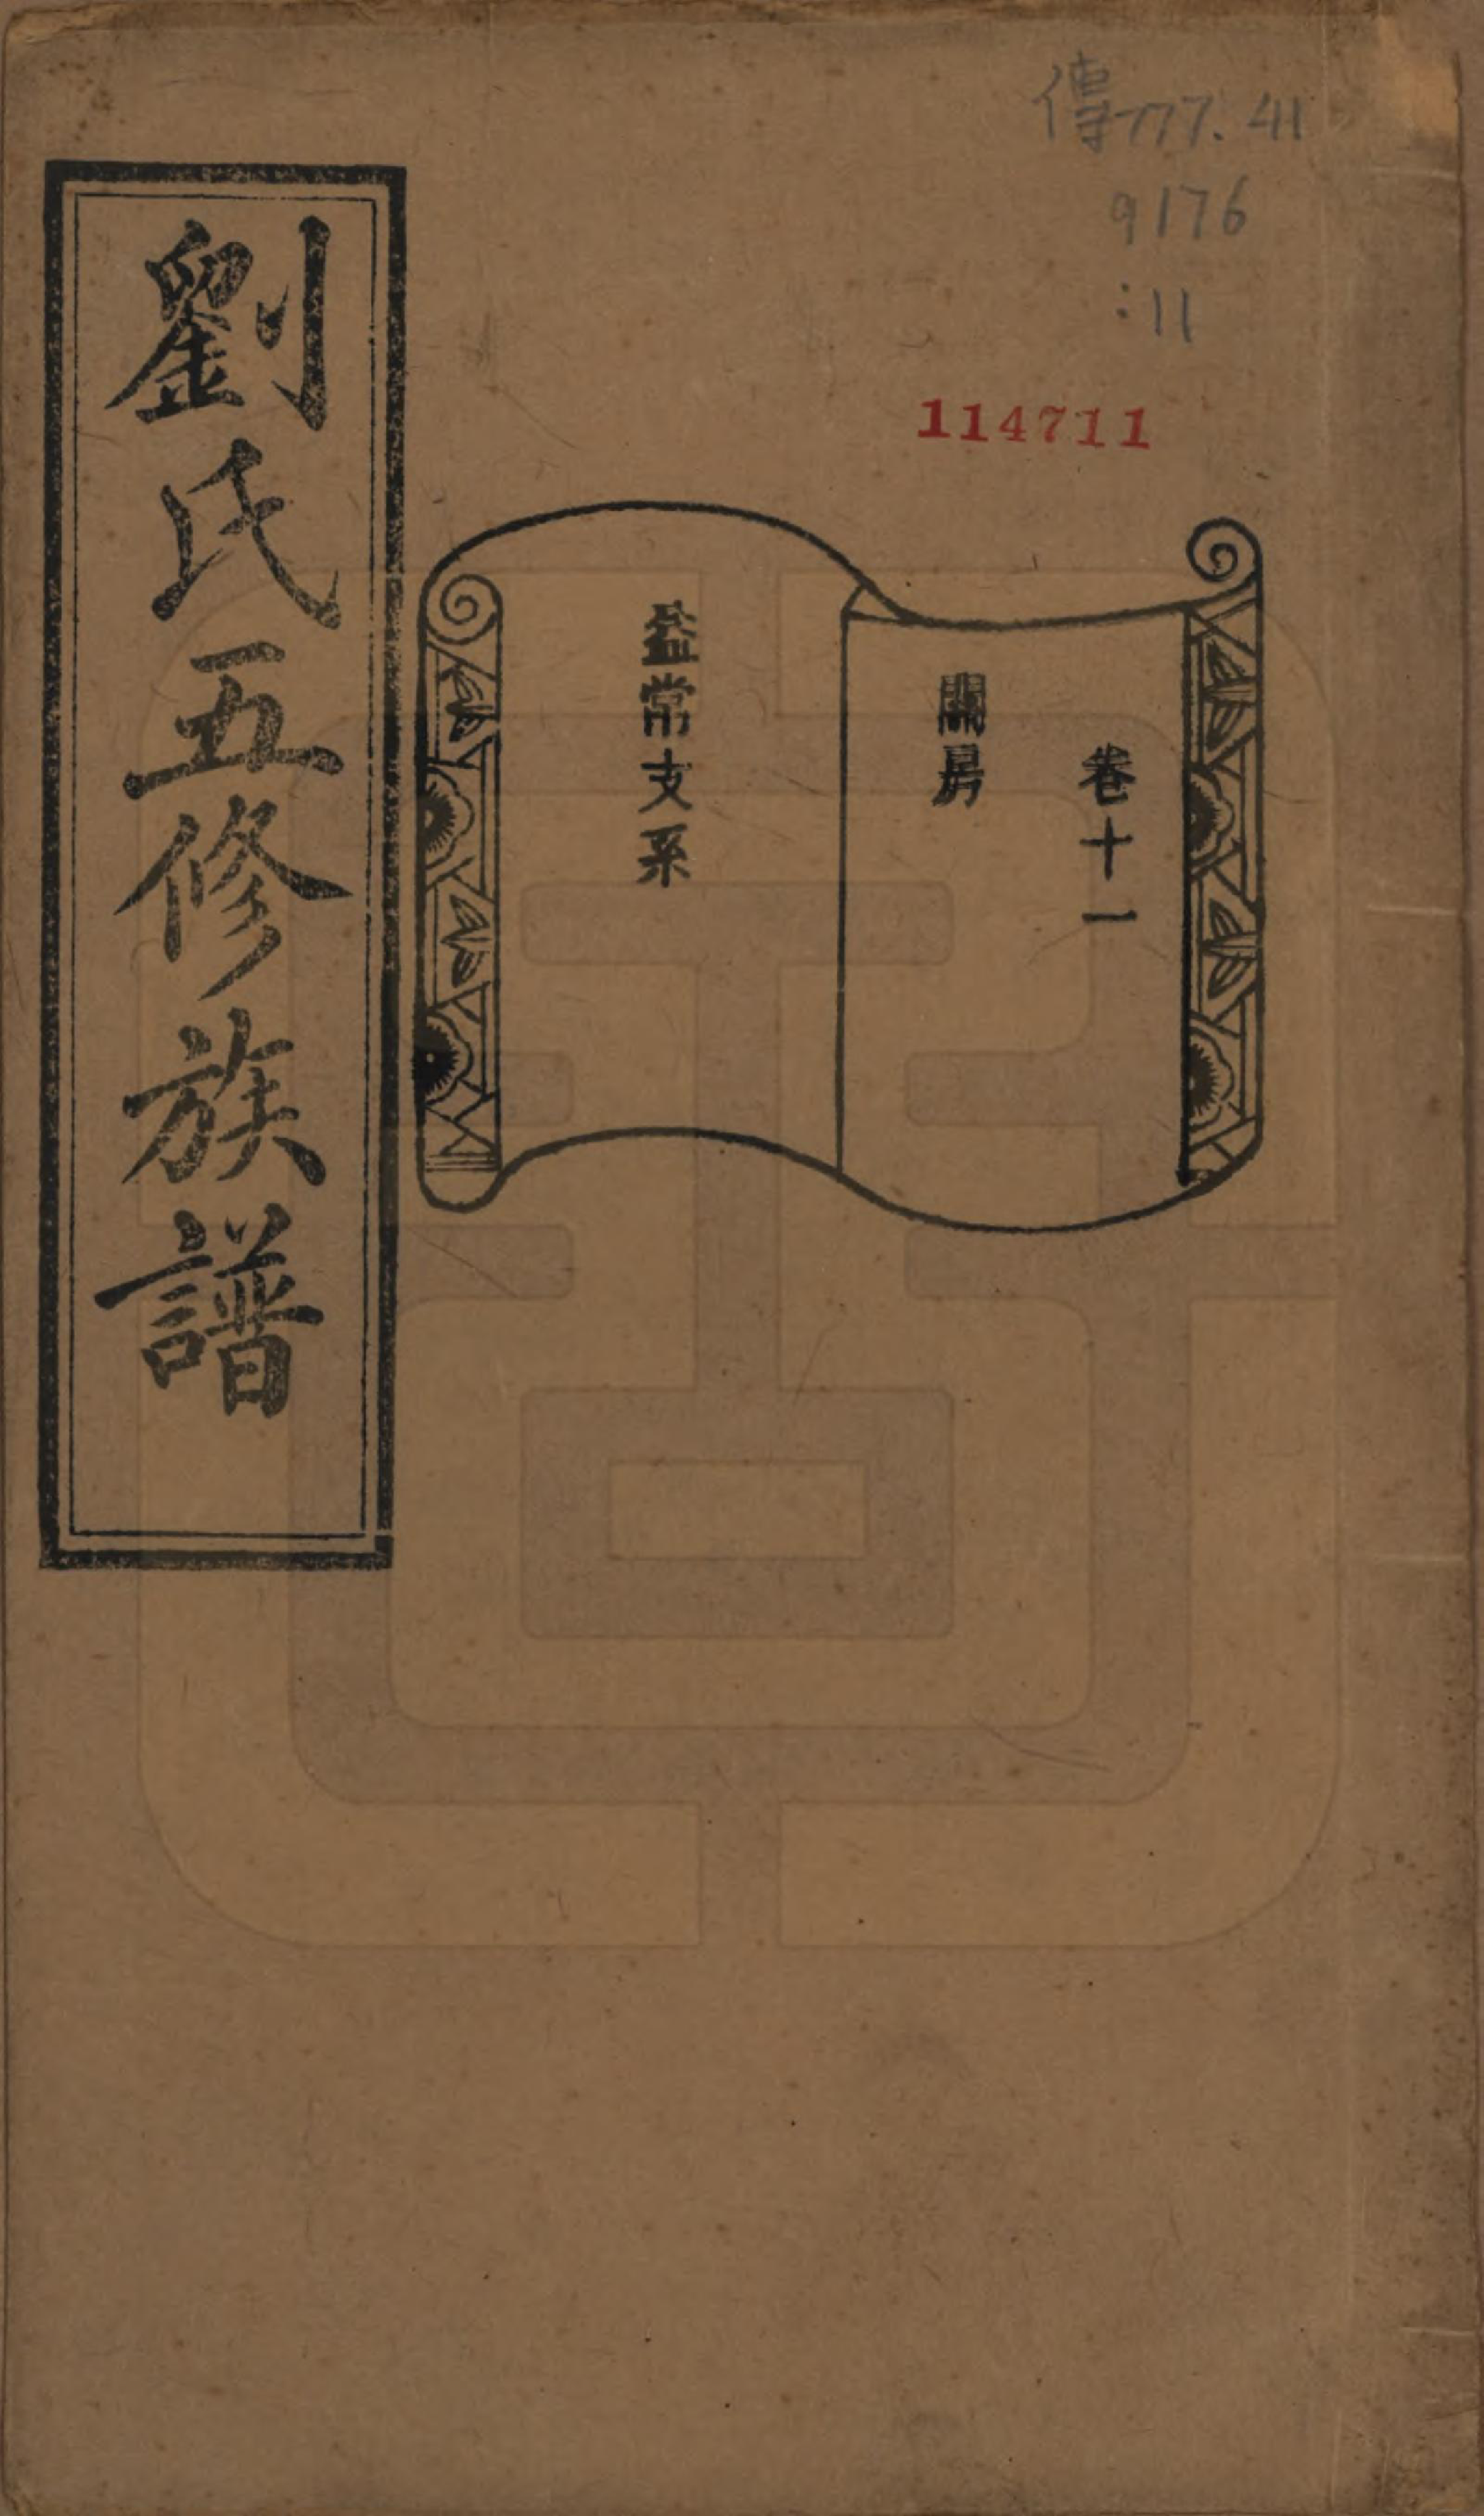 傳777.41
9176
:11
114711
卷十一
關房
益常支系
劉氏五修族譜